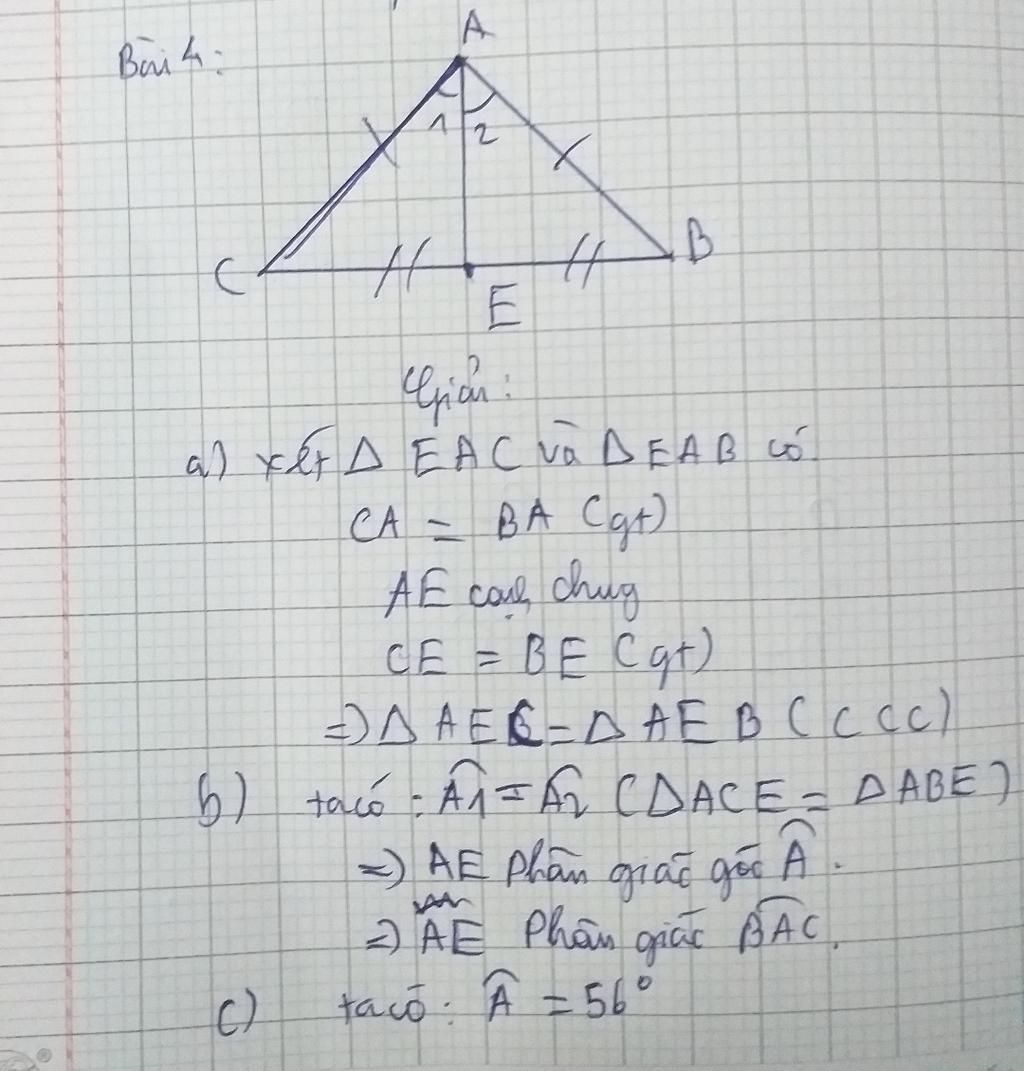 Bài 4:
A
1 2
C
B
E
Giải:
a) xét Δ EAC và Δ EAB có
CA = BA (gt)
AE cạnh chug
CE = BE (gt)
=) Δ AEC = Δ AEB (CCC)
b) ta có: Â1 = Â2 (ΔACE = ΔABE)
=) AE phân giác góc Â.
=) AE Phân giác BAC.
c) ta có: Â = 56°